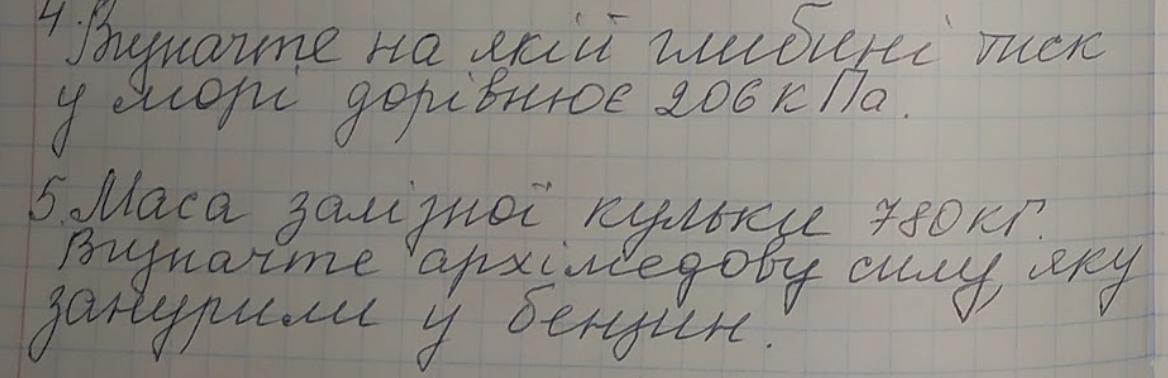 4. Визначте на якій глибині тиск
у морі дорівнює 206 кПа.
5. Маса залізної кульки 780 кг.
Визначте архімедову силу, яку
занурили у бензин.